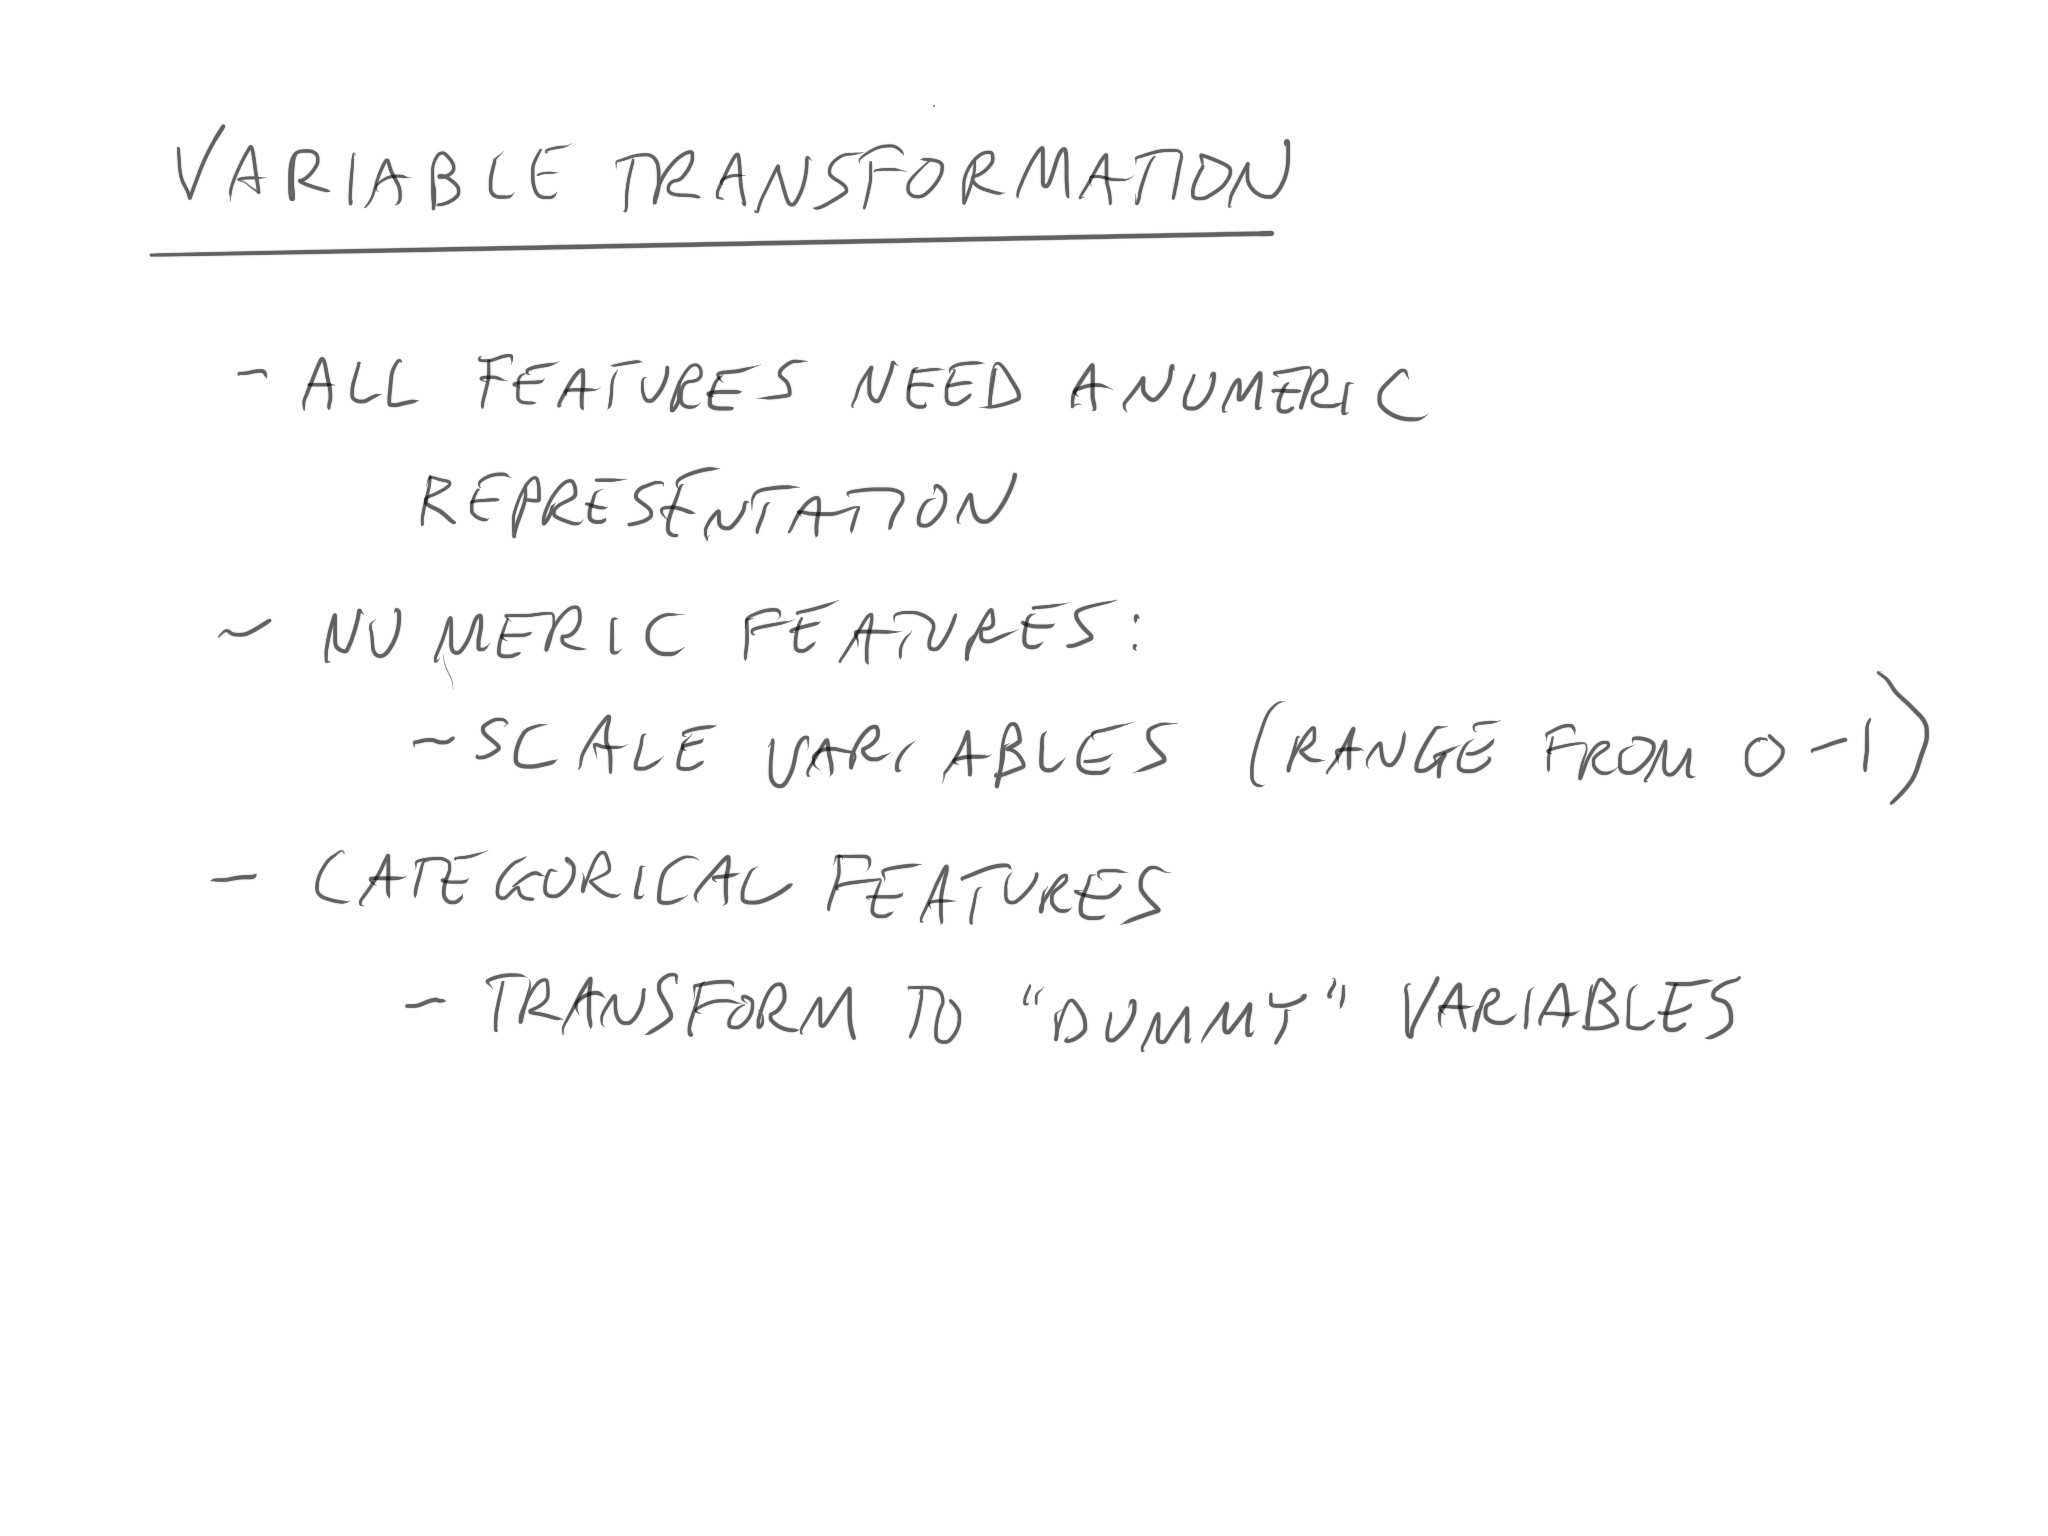 VARIABLE TRANSFORMATION
- ALL FEATURES NEED A NUMERIC
REPRESENTATION
- NUMERIC FEATURES:
- SCALE VARIABLES (RANGE FROM 0-1)
- CATEGORICAL FEATURES
- TRANSFORM TO "DUMMY" VARIABLES